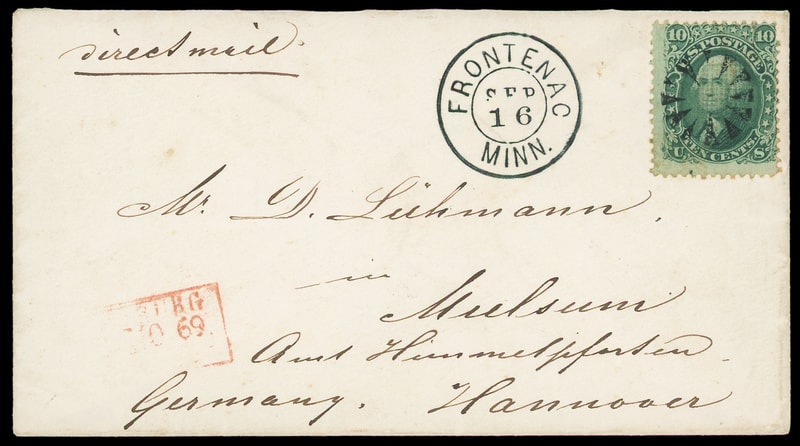 direct mail.
FRONTENAC
SEP
16
MINN.
10 10
U.S. POSTAGE
TEN CENTS
U S
Mr. D. Lühmann,
in
Mulsum
Amt Himmelpforten
Germany. Hannover
BURG
69.